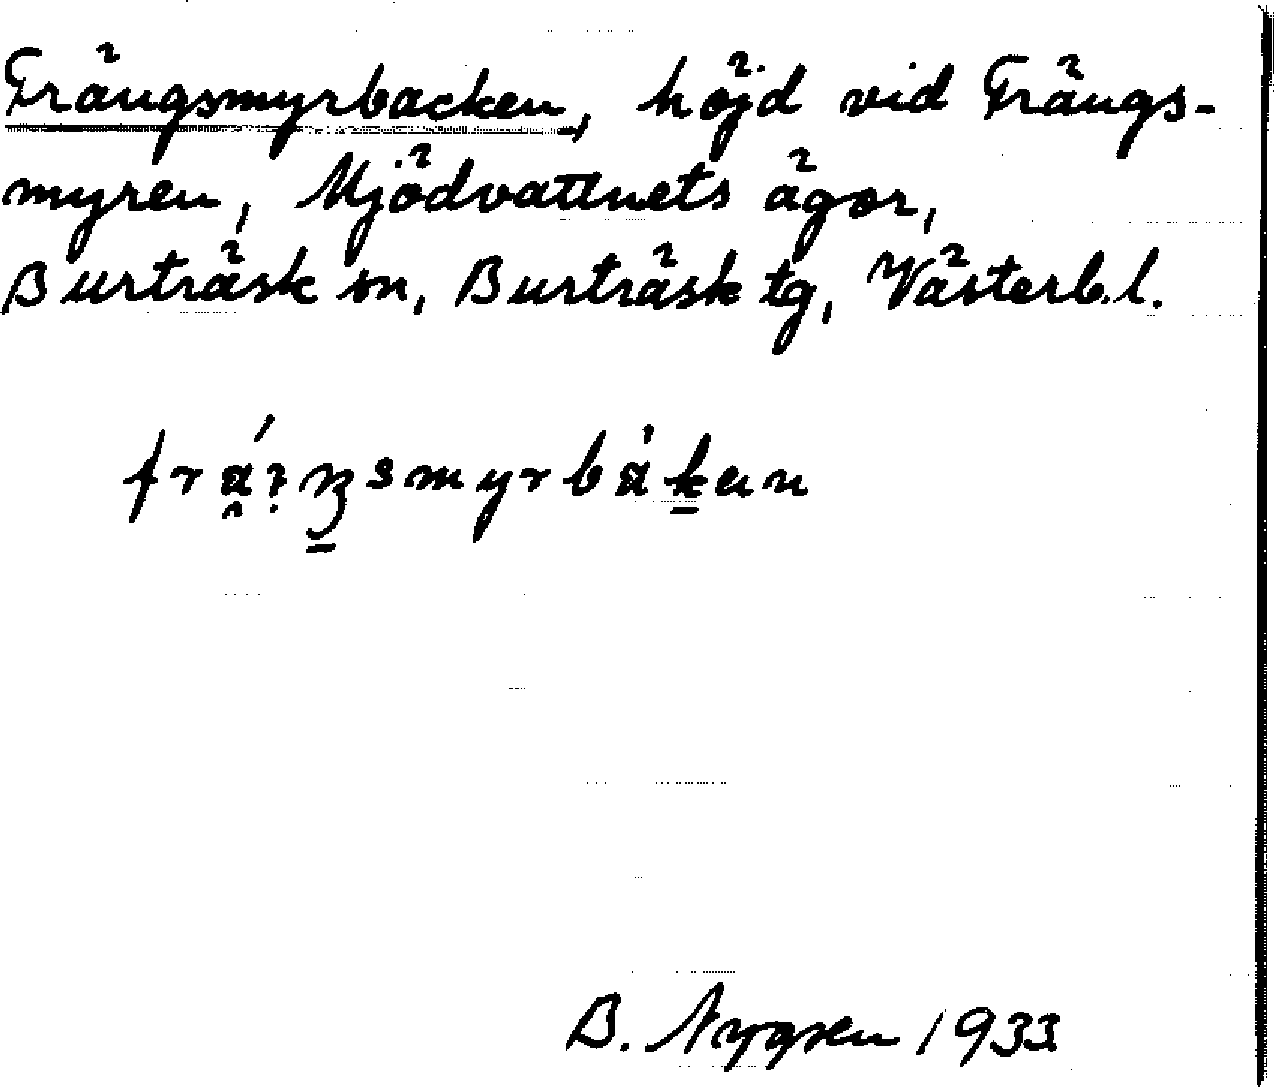 Trängsmyrbacken, höjd vid Trängs-
myren, Mjödvattnets ägor,
Burträsk sn, Burträsk tg, Västerb.l.
B. Nygren 1933